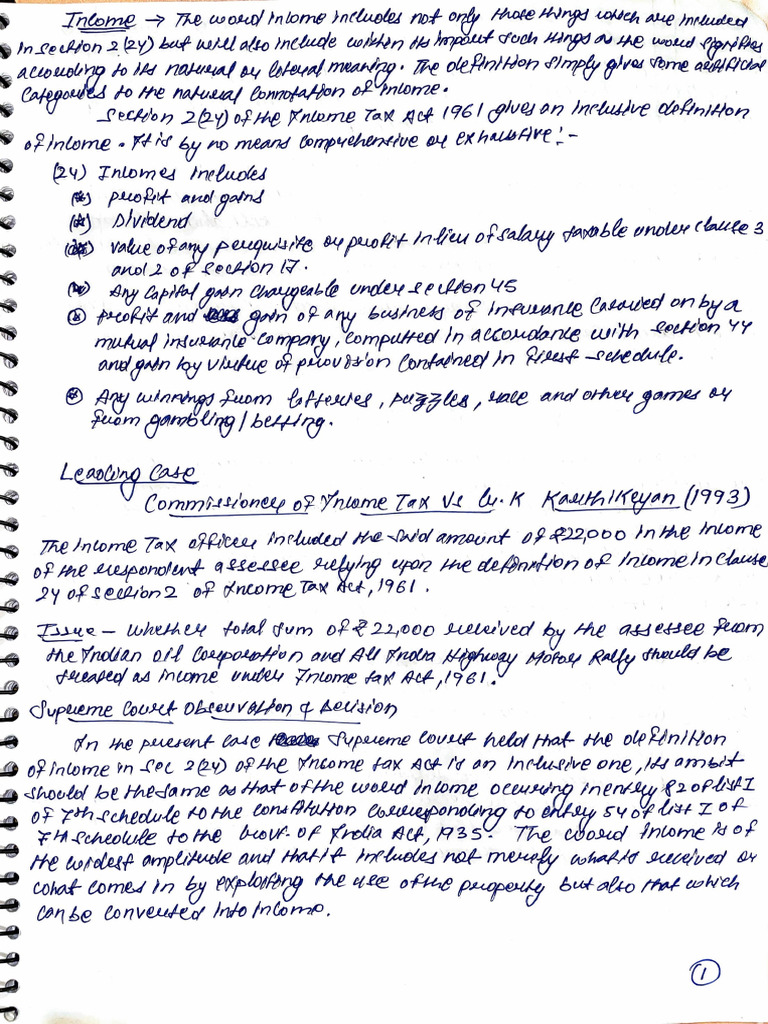 Income → The word income includes not only those things which are included
in section 2(24) but will also include within its impact such things as the word signifies
according to its natural or literal meaning. The definition simply gives some artificial
categories to the natural connotation of income.
Section 2(24) of the Income Tax Act 1961 gives an inclusive definition
of income. It is by no means comprehensive or exhaustive:-
(24) Incomes includes
profit and gains
Dividend
value of any perquisite or profit in lieu of salary taxable under clause 3
and 2 of section 17.
Any capital gain chargeable under section 45
profit and gain of any business of insurance carried on by a
mutual insurance company, computed in accordance with section 44
and gain by virtue of provision contained in first-schedule.
Any winnings from lotteries, puzzles, race and other games or
from gambling/betting.
Leading Case
Commissioner of Income Tax Vs G.K Karthikeyan (1993)
The Income Tax officer included the said amount of ₹22,000 in the income
of the respondent assessee relying upon the definition of income in clause
24 of section 2 of Income Tax Act, 1961.
Issue - whether total sum of ₹22,000 received by the assessee from
the Indian oil Corporation and All India Highway Motor Rally should be
treated as income under Income tax Act, 1961.
Supreme Court Observation & Decision
In the present case Supreme court held that the definition
of income in sec 2(24) of the Income tax Act is an inclusive one, its ambit
should be the same as that of the word income occuring in entry 82 of list I
of 7th schedule to the constitution corresponding to entry 54 of list I of
7th schedule to the Govt. of India Act, 1935. The word income is of
the widest amplitude and that it includes not merely what is received or
what comes in by exploiting the use of the property but also that which
can be converted into income.
1